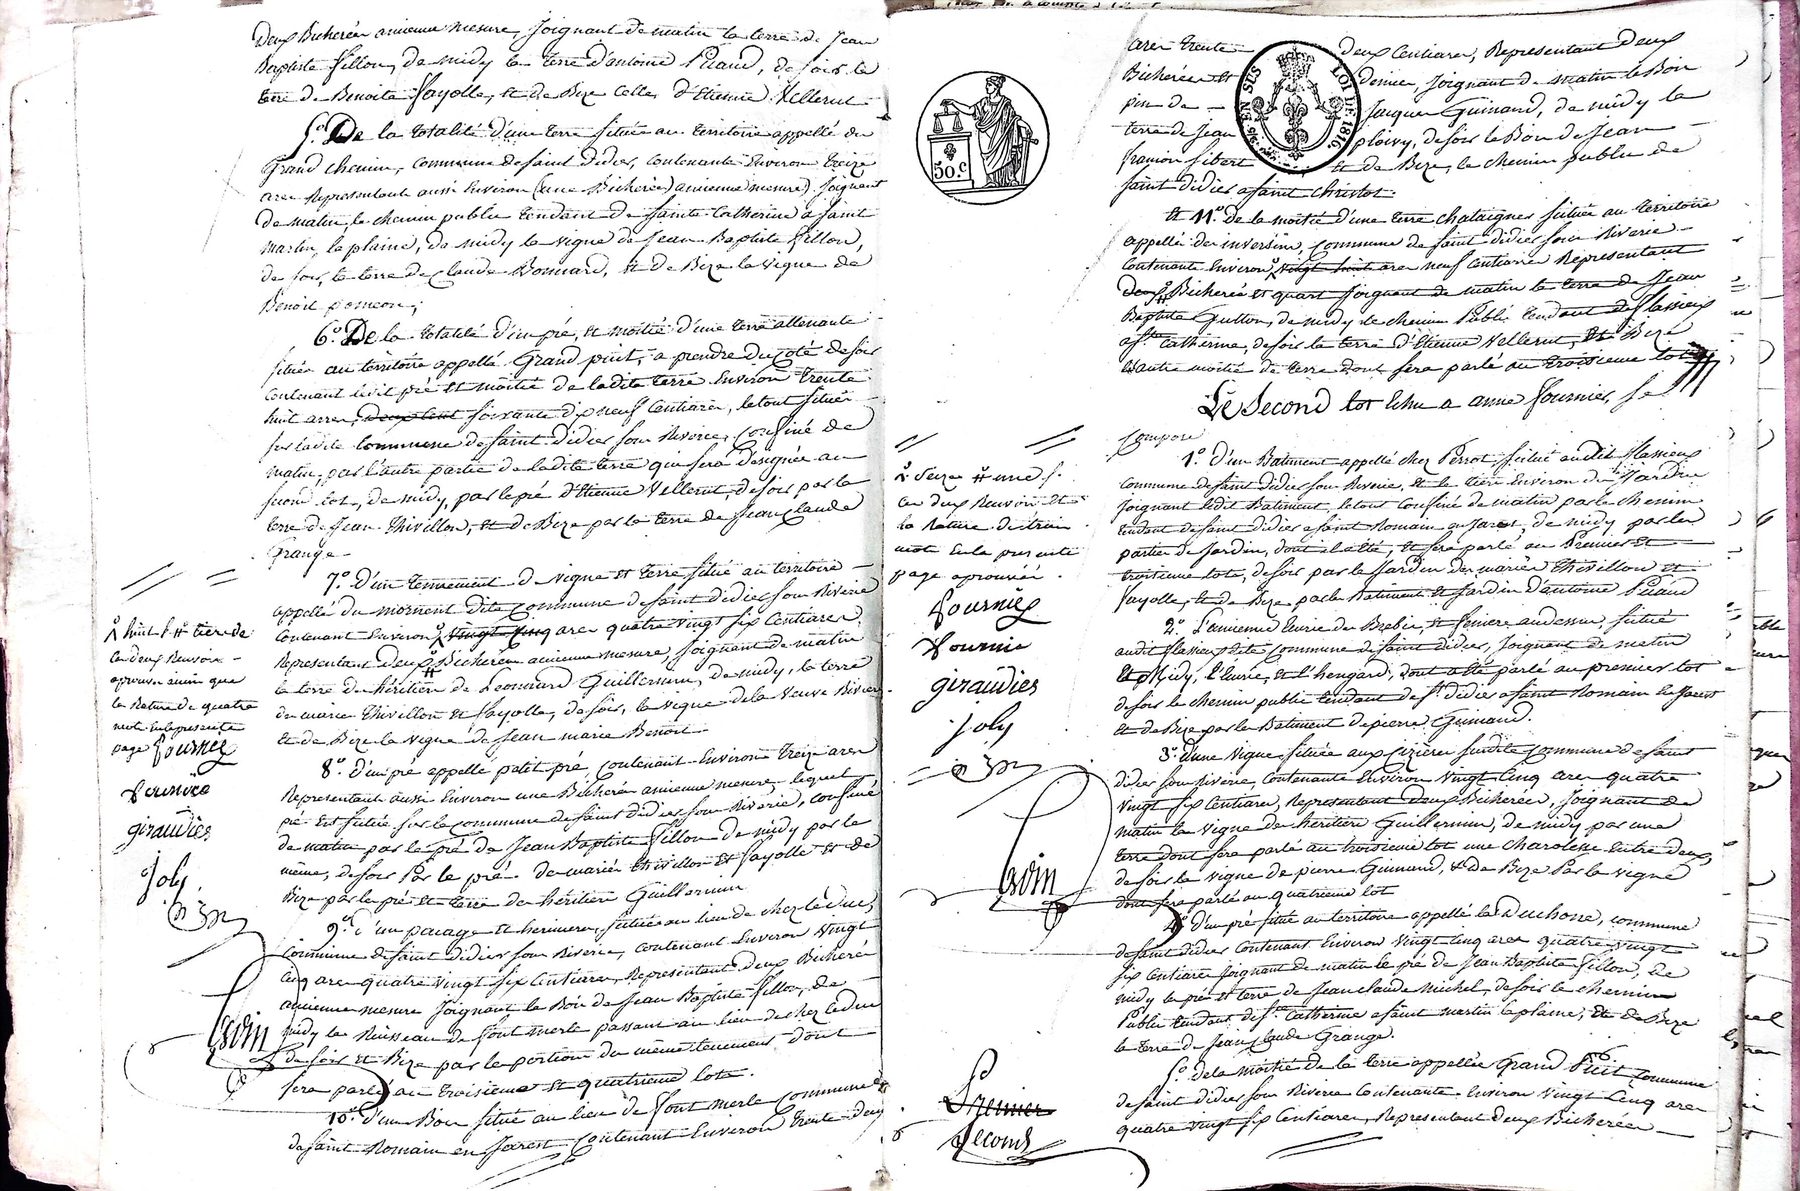 deux Bicherées ancienne mesure, Joignant de matin la terre de Jean
Baptiste Fillon, de midy la terre d'antoine Piaud, de soir la
terre de Benoite Fayolle, et de Bize Celle d'Etienne Vellerut
5.° De la totalité d'une terre située au territoire appellé du
Grand chemin, commune de Saint Didier, contenante Environ treize
ares Representant aussi Environ (une Bicherée) ancienne mesure). Joignant
de matin, le chemin public tendant de Sainte Catherine a Saint
Martin la plaine, de midy la vigne de Jean Baptiste Fillon,
de soir, la terre de Claude Bonnard, et de Bize la vigne de
Benoit poncon;
6.° De la totalité d'un pré, et moitié d'une terre attenante
située au territoire appellé Grand puit, a prendre du coté de soir
contenant ledit pré et moitié de ladite terre Environ trente
huit ares, deux cent soixante dix neuf Centiares, le tout situé
sur ladite commune de Saint Didier sous Riverie, Confiné de
matin, par l'autre partie de ladite terre qui sera designée au
second lot, de midy, par le pré d'Etienne Vellerut, de soir par la
terre de Jean Thivillon, et de Bize par la terre de Jean Claude
Grange
7.° D'un tennement de vigne et terre situé au territoire
appellé du mornent dite Commune de Saint Didier sous Riverie
Contenant Environ vingt Cinq ares quatre vingt six Centiares,
Representant deux Bicherées ancienne mesure, Joignant de matin
la terre des héritiers de Leonnard Guillermin, de midy, la terre
des mariés Thivillon et Fayolle, de soir, la vigne de la Veuve Rivier
et de Bize la vigne de Jean marie Benoit
8.° d'un pré appellé petit pré, contenant Environ treize ares
Representant aussi Environ une Bicherée ancienne mesure, lequel
pré est situé sur la commune de Saint Didier sous Riverie, confiné
de matin par le pré de Jean Baptiste Fillon de midy par le
même, de soir Par le pré des mariés Thivillon et Fayolle et de
Bize par le pré et terre des héritiers Guillermin
9.° d'un pacage et herimere, située au lieu de chez le duc,
Commune de Saint Didier sous Riverie, contenant Environ vingt
Cinq ares quatre vingt six Centiares, Representant deux Bicherées
ancienne mesure Joignant le Bois de Jean Baptiste Fillon, de
midy le Ruisseau de font merle passant au lieu de chez le duc
de soir et Bize par les portions du même tennement dont
sera parlé au troisieme et quatrieme lots.
10.° d'un Bois situé au lieu de font merle commune
de Saint Romain en Jarrest Contenant Environ trente deux
huit tierce
ces deux Renvois
aprouvés ainsi que
la Rature de quatre
mots en la presente
page Fournier
Fournier
giraudier
Joly
50.c
EN SUS
LOI DE 1816
ares trente deux Centiares, Representant deux
Bicherées et demie Joignant de matin le Bois
pin de Jacques Guinand, de midy la
terre de Jean ploivy, de soir le Bois de Jean
francois fibert et de Bize, le chemin public de
Saint didier a Saint Christot
et 11.° De la moitié d'une terre chataignes située au territoire
appellé des inversin, Commune de Saint didier sous Riverie
Contenante Environ vingt huit ares neuf Centiares Representant
deux Bicherées et quart Joignant de matin la terre de Jean
Baptiste Gutton, de midy le chemin Public tendant de flassieux
a Ste Catherine, de soir la terre d'Etienne Vellerut, Et de Bize
L'autre moitié de terre dont sera parlé au troisieme lot
Le Second lot Echu a anne fournier, se
Compose
1.° d'un Batiment appellé chez Perrot, situé audit flassieux
commune de Saint didier sous Riverie, et le tiers Environ du Jardin
Joignant ledit Batiment, le tout Confiné de matin par le chemin
tendant de Saint didier a Saint Romain en Jarest, de midy par les
parties de Jardin, dont il a été, et sera parlé au Premier et
troisieme lots, de soir par le Jardin des mariés Thivillon et
Fayolle, et de Bize par le Batiment et Jardin d'antoine Piaud
2.° L'ancienne Eurie des Brebis, et feniere au dessus, situé
audit flassieux dite Commune de Saint didier, Joignant de matin
Et Midy, l'Eurie, et l'hengard, dont a été parlé au premier lot
de soir le chemin public tendant de St didier a Saint Romain en Jarest
et de Bize par le Batiment de pierre Guinand.
3.° d'une vigne, située aux Cizieres susdite Commune de Saint
didier sous Riverie, contenante Environ vingt Cinq ares quatre
vingt six Centiares, Representant deux Bicherées, Joignant de
matin la vigne des heritiers Guillermin, de midy par une
terre dont sera parlé au troisieme lot une charolesse entre deux,
de soir la vigne de pierre Guinand, & de Bize Par la vigne
dont sera parlé au quatrieme lot
4.° d'un pré situé au territoire appellé la Duchone, commune
de Saint didier Contenant Environ vingt Cinq ares quatre vingt
six Centiares Joignant de matin le pré de Jean Baptiste Fillon, de
midy le pré et terre de Jean Claude Michel, de soir le chemin
Public tendant de Ste Catherine a Saint Martin la plaine, et de Bize
la terre de Jean Claude Grange.
5.° de la moitié de la terre appellée Grand Puit commune
de Saint didier sous Riverie Contenante Environ vingt Cinq ares
quatre vingt six Centiares, Representant deux Bicherées
Seize
ces deux Renvois et
la Rature de trois
mots En la presente
page aprouvés.
Fournier
Fournie
giraudier
Joly
Premier
Second